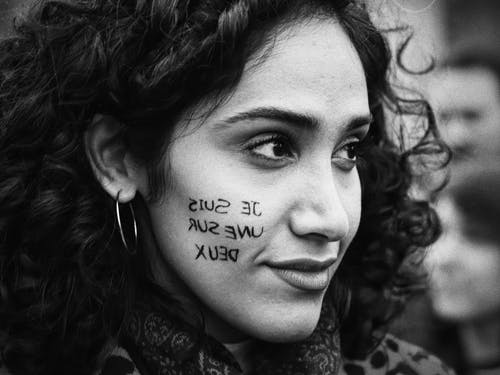 JE SUIS
UNE SUR
DEUX